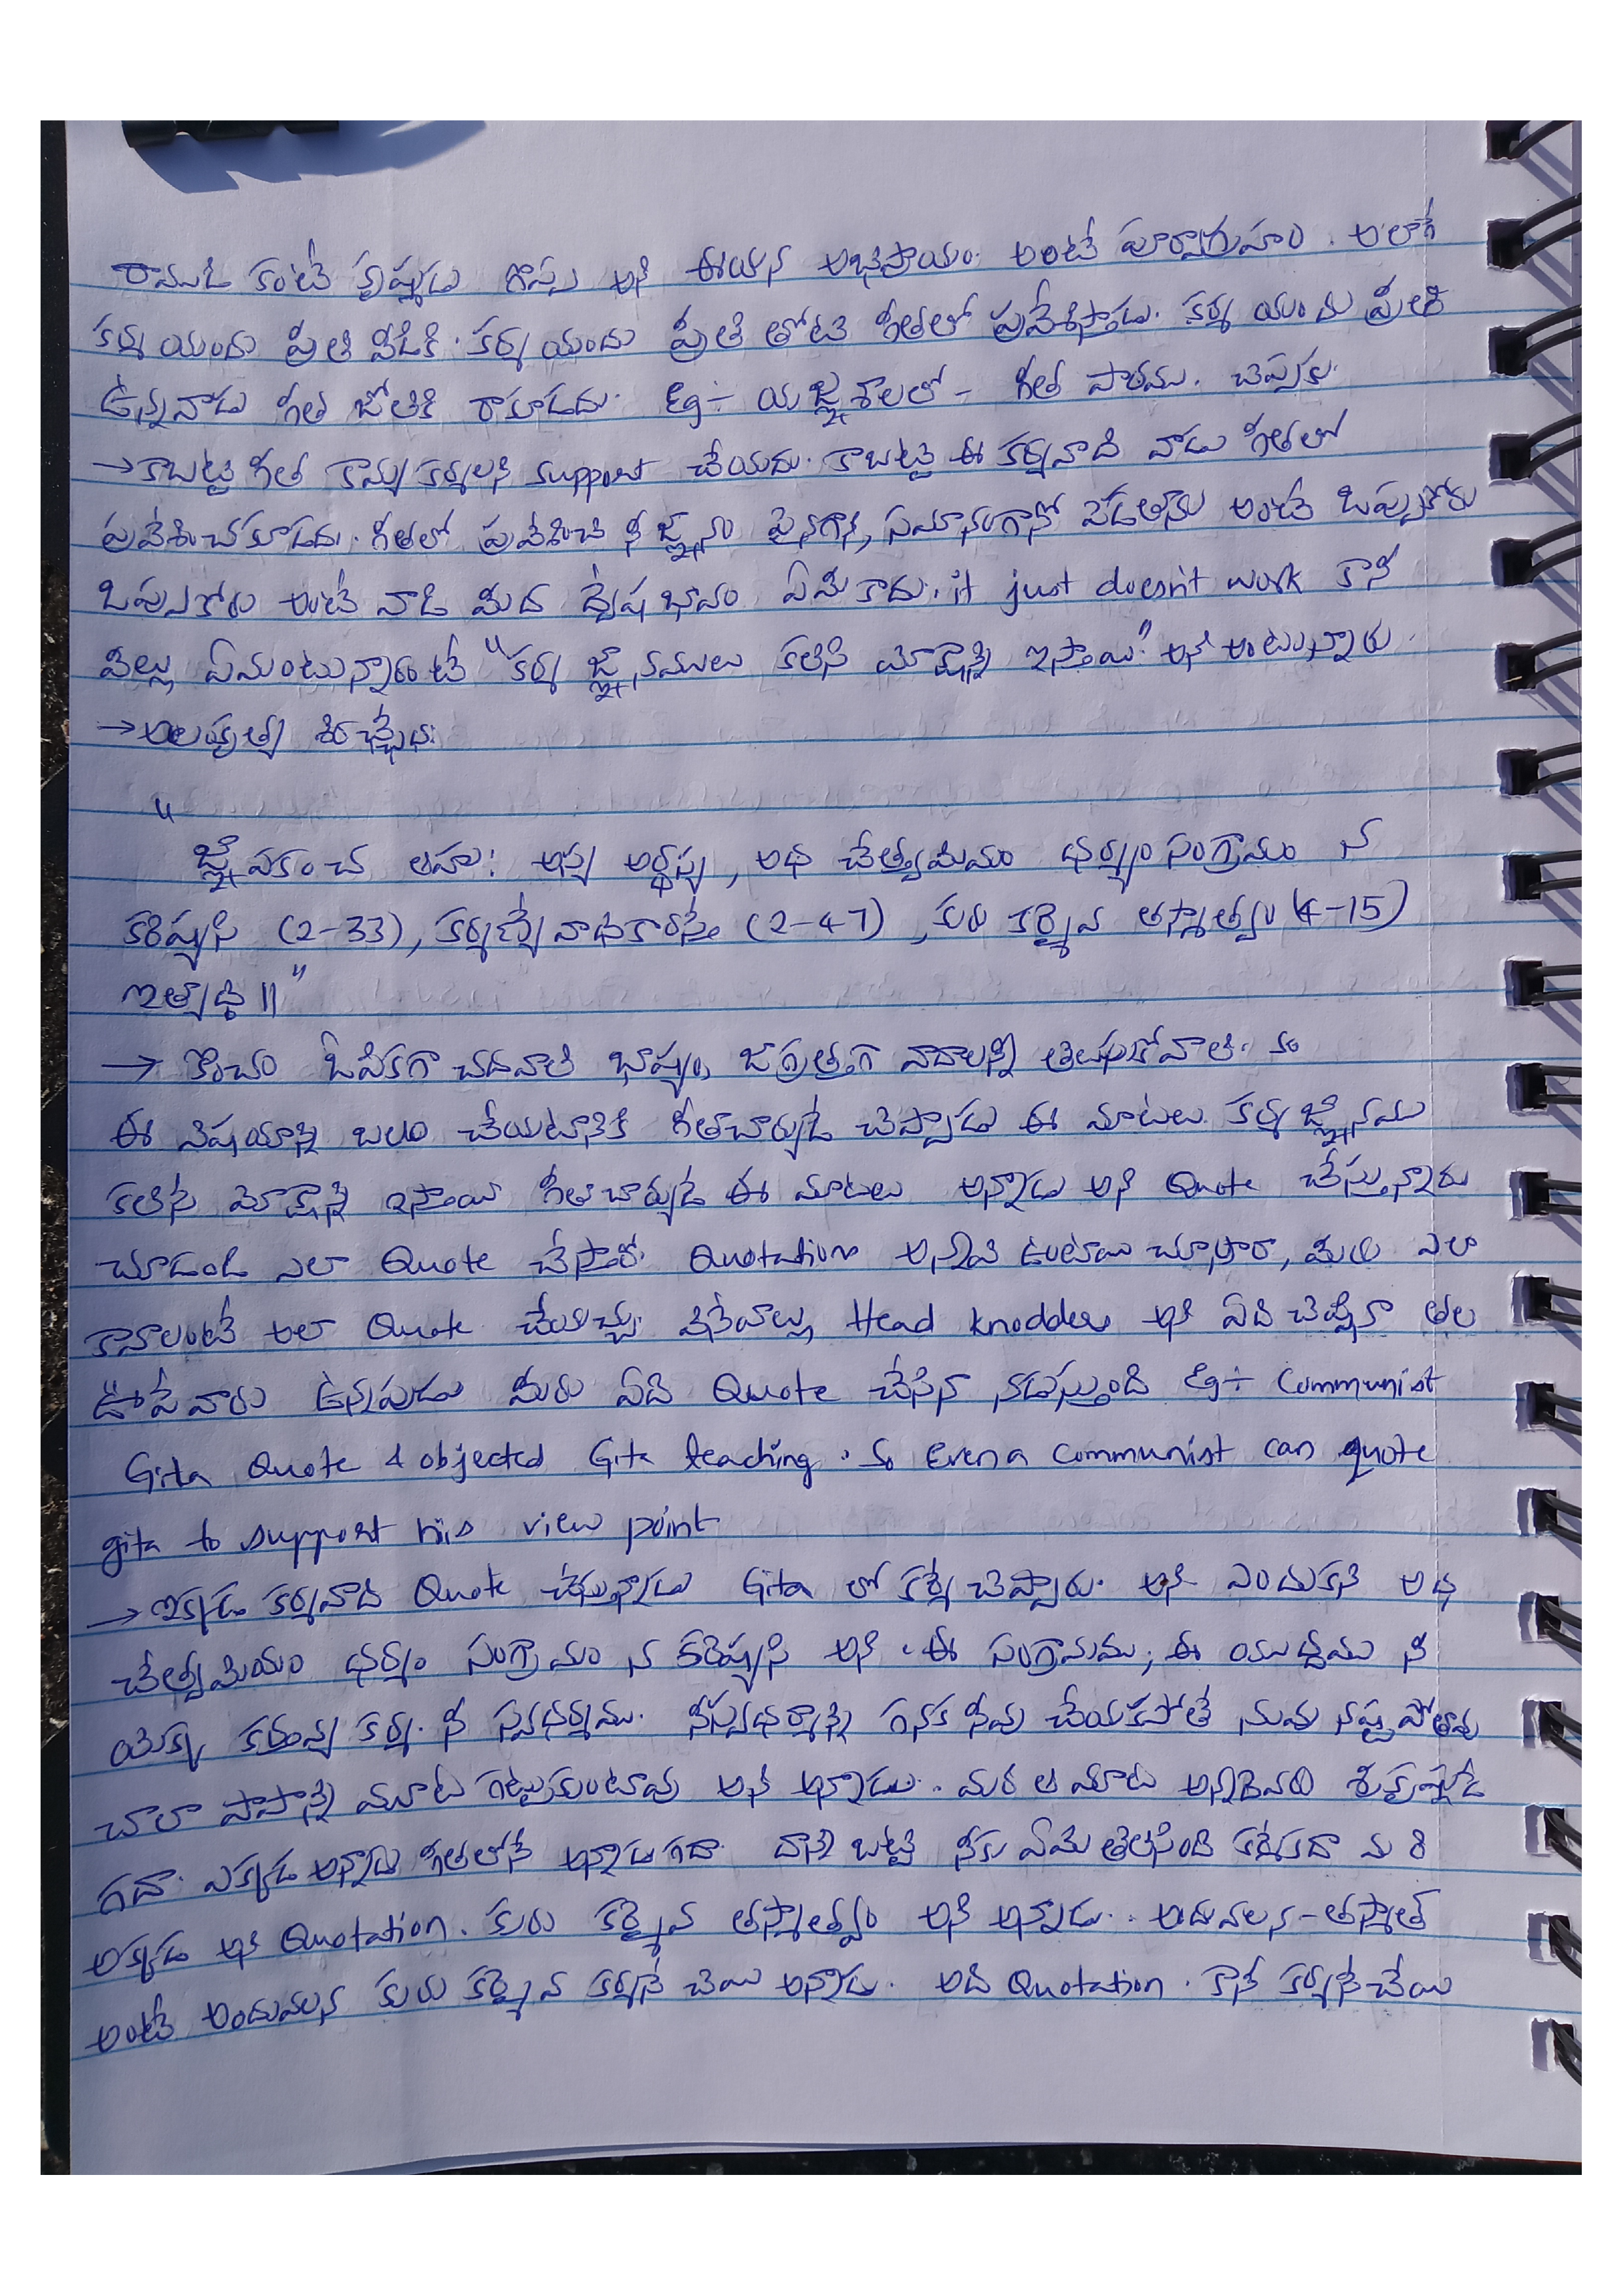 రాముడి కంటే కృష్ణుడు గొప్ప అని ఈయన అభిప్రాయం. అంటే పూర్వాగ్రహం. అలాగే
కర్మ యందు ప్రీతి వీడికి. కర్మ యందు ప్రీతి తోటి గీతలో ప్రవేశిస్తాడు. కర్మ యందు ప్రీతి
ఉన్నవాడు గీత జోలికి రాకూడదు. Eg÷ యజ్ఞశాలలో - గీత పారము. చెప్పకు.
→ కాబట్టి గీత కామ్య కర్మలని support చేయదు. కాబట్టి ఈ కర్మవాది వాడు గీతలో
ప్రవేశించకూడదు. గీతలో ప్రవేశించి నీ జ్ఞానం పైనగానీ, సమానంగానో పెడతాను అంటే ఒప్పుకోరు
ఒప్పుకోరు అంటే వాడి మీద ద్వేష భావం ఏమీ కాదు. it just doesn't work కానీ
వీల్లు ఏమంటున్నారంటే "కర్మ జ్ఞానములు కలిసి మోక్షాన్ని ఇస్తాయి." అని అంటున్నారు.
→
"
జ్ఞాపకం చ ఆహుః అస్య అర్థస్య, అథ చేత్త్వమిమం ధర్మ్యం సంగ్రామం న
కరిష్యసి (2-33), కర్మణ్యే వాధికారస్తే (2-47), కురు కర్మైవ తస్మాత్త్వం (4-15)
ఇత్యాది ॥"
→ కొంచం ఓపికగా చదవాలి భాష్యం, జాగ్రత్తగా వాదాలన్నీ తెలుసుకోవాలి.
ఈ విషయాన్ని బలం చేయటానికి గీతాచార్యుడే చెప్పాడు ఈ మాటలు. కర్మ జ్ఞానము
కలిసే మోక్షాన్ని ఇస్తాయి గీతాచార్యుడే ఈ మాటలు అన్నాడు అని Quote చేస్తున్నారు
చూడండి ఎలా Quote చేస్తారో. Quotations అన్నీ ఉంటాయి చూశారా, మీరు ఎలా
కావాలంటే అలా Quote చేయొచ్చు. వినేవాల్లు Head knodders అని ఏది చెప్పినా తల
ఊపే వారు ఉన్నపుడు మీరు ఏది Quote చేసినా నడుస్తుంది Eg÷ Communist
Gita Quote & objected Gita teaching. So Even a communist can quote
gita to support his view point
→ ఇక్కడ కర్మవాది Quote చేస్తున్నాడు Gita లో కర్మే చెప్పారు. అని ఎందుకని అథ
చేత్త్వమియం ధర్మ్యం సంగ్రామం న కరిష్యసి అని. ఈ సంగ్రామము, ఈ యుద్ధము నీ
యొక్క కర్తవ్య కర్మ. నీ స్వధర్మము. నీ స్వధర్మాన్ని గనక నీవు చేయకపోతే నువు నష్టపోతావు
చాలా పాపాన్ని మూట గట్టుకుంటావు అని అన్నాడు. మరి ఆ మాట అన్నదెవరు శ్రీకృష్ణుడే
గదా. ఎక్కడ అన్నాడు గీతలోనే అన్నాడు గదా. దాన్ని బట్టి నీకు ఏమి తెలిసింది కర్మేకదా మరి
అక్కడ అని Quotation. కురు కర్మైవ తస్మాత్త్వం అని అన్నాడు. అందువలన - తస్మాత్
అంటే అందువలన కురు కర్మైవ కర్మనే చేయి అన్నాడు. అది Quotation. కానీ కర్మనే చేయి